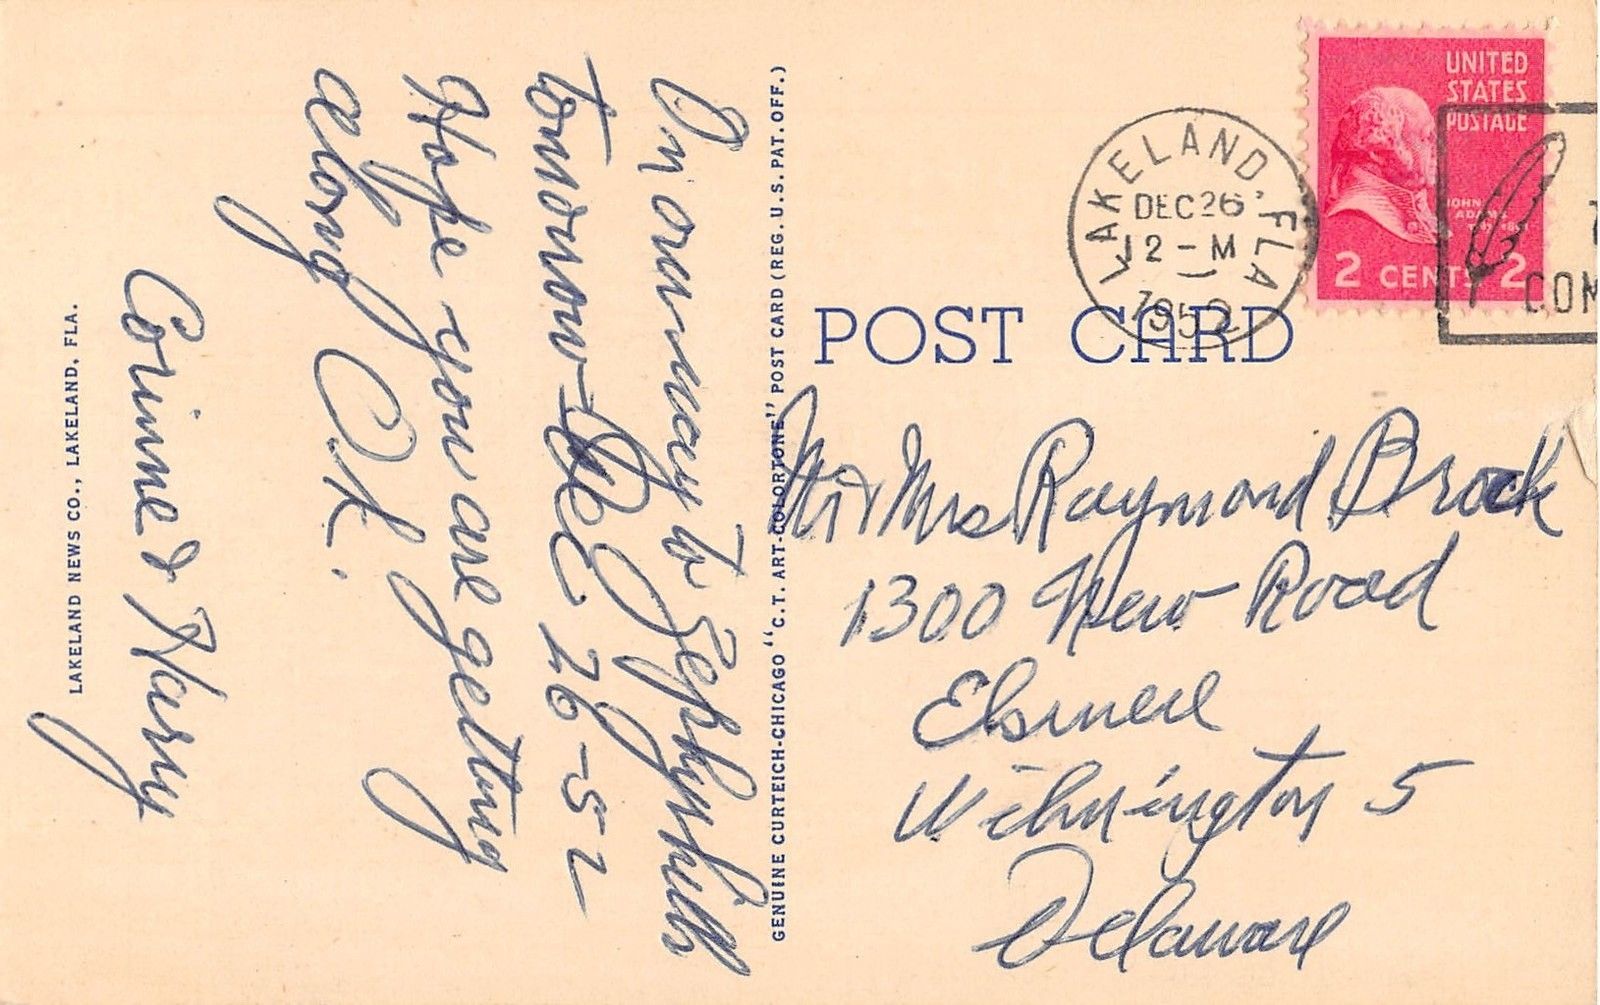 On our way to Zephyrhills
tomorrow - Dec 26-52
Hope you are getting
along O.K.
Corinne & Harry
LAKELAND NEWS CO., LAKELAND, FLA.
GENUINE CURTEICH-CHICAGO "C.T. ART-COLORTONE" POST CARD (REG. U.S. PAT. OFF.)
POST CARD
LAKELAND, FLA
DEC 26
12 - M
1952
UNITED
STATES
POSTAGE
JOHN
ADAMS
2 CENTS 2
COM
Mr & Mrs Raymond Brock
1300 New Road
Elsmere
Wilmington 5
Delaware